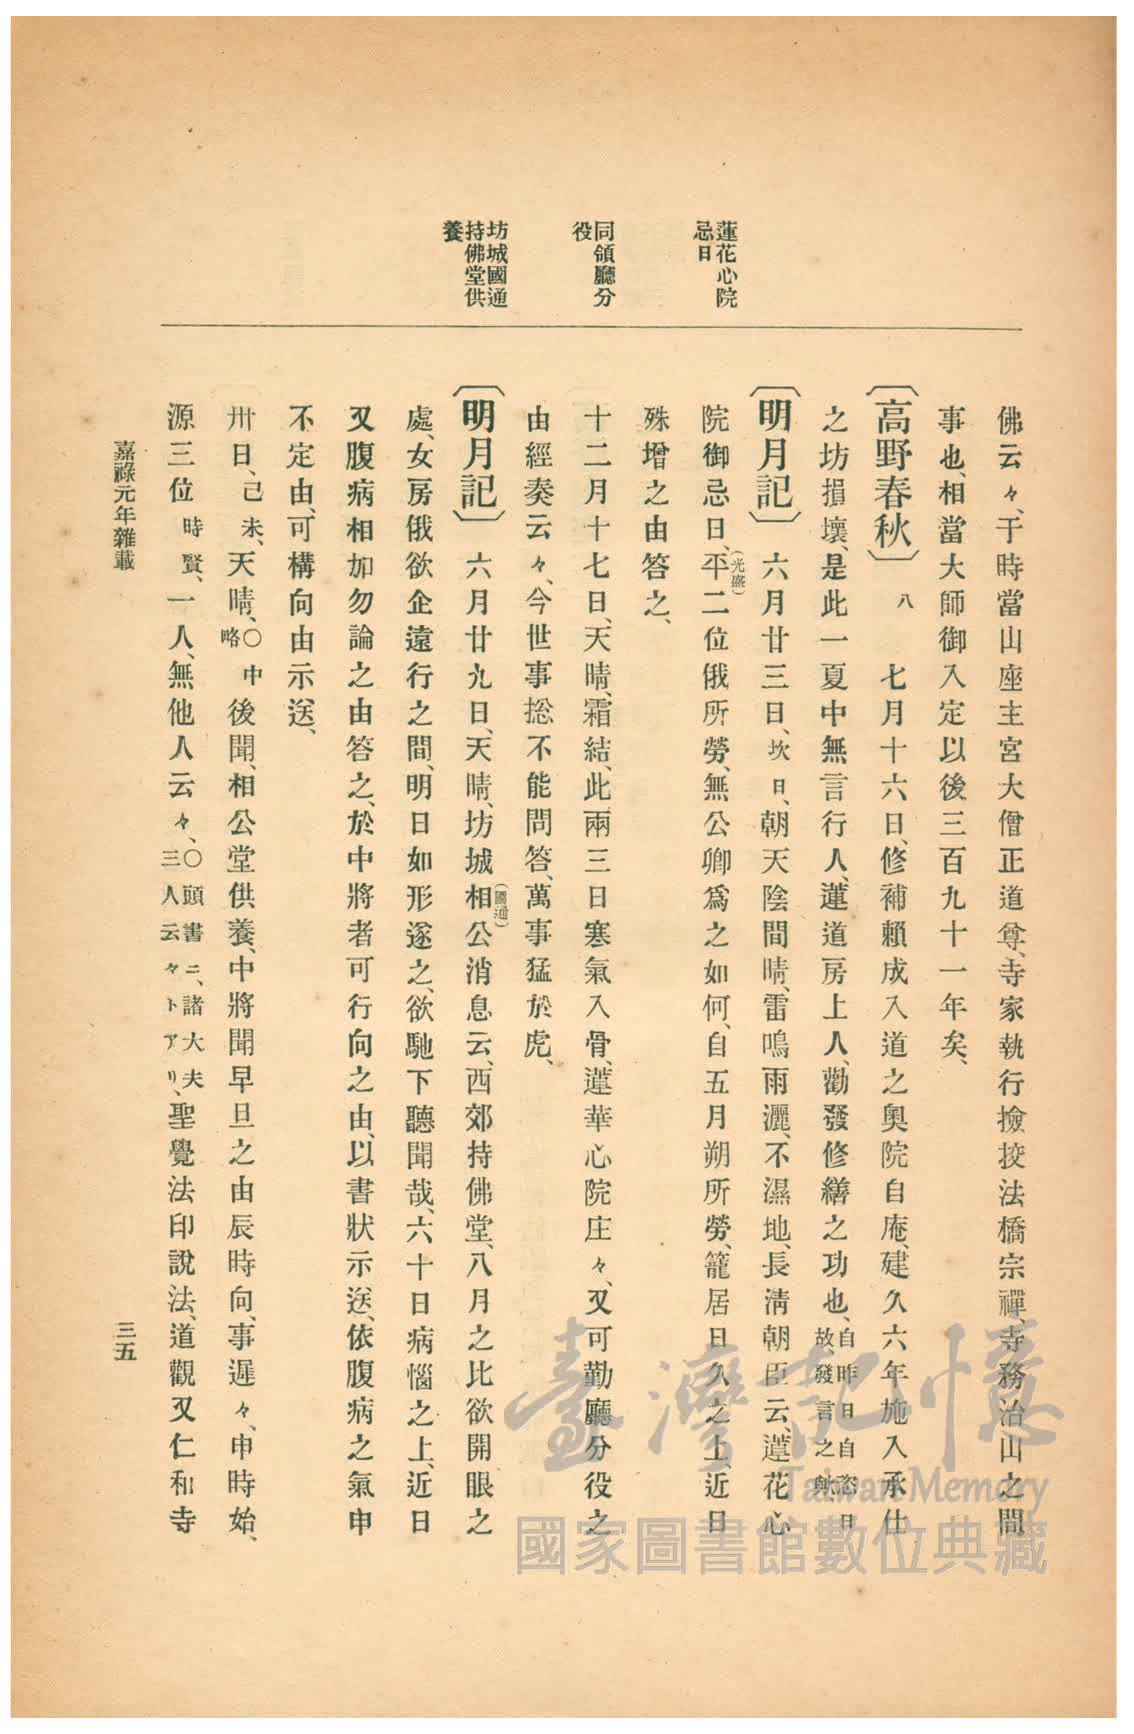 蓮花心院
忌日
同領廳分
役
坊城國通
持佛堂供
養
佛云々、于時當山座主宮大僧正道尊、寺家執行撿挍法橋宗禪、寺務治山之間
事也、相當大師御入定以後三百九十一年矣、
〔高野春秋〕 八 七月十六日、修補賴成入道之奧院自庵、建久六年施入承仕
之坊損壞、是此一夏中無言行人、蓮道房上人、勸發修繕之功也、自昨日自恣日故發言之歟、
〔明月記〕 六月廿三日、坎日、朝天陰間晴、雷鳴雨灑、不濕地、長淸朝臣云、蓮花心
院御忌日、平二位(光盛)俄所勞、無公卿爲之如何、自五月朔所勞、籠居日久之上近日
殊增之由答之、
十二月十七日、天晴、霜結、此兩三日寒氣入骨、蓮華心院庄々、又可勤廳分役之
由經奏云々、今世事捴不能問答、萬事猛於虎、
〔明月記〕 六月廿九日、天晴、坊城相公(國通)消息云、西郊持佛堂、八月之比欲開眼之
處、女房俄欲企遠行之間、明日如形遂之、欲馳下聽聞哉、六十日病惱之上、近日
又腹病相加勿論之由答之、於中將者可行向之由、以書狀示送、依腹病之氣申
不定由、可構向由示送、
卅日、己未、天晴、〇中略後聞、相公堂供養、中將聞早旦之由辰時向、事遲々、申時始、
源三位時賢、一人、無他人云々、〇頭書ニ、諸大夫三人云々トアリ、聖覺法印說法、道觀又仁和寺
嘉祿元年雜載
三五
臺灣記憶
Taiwan Memory
國家圖書館數位典藏